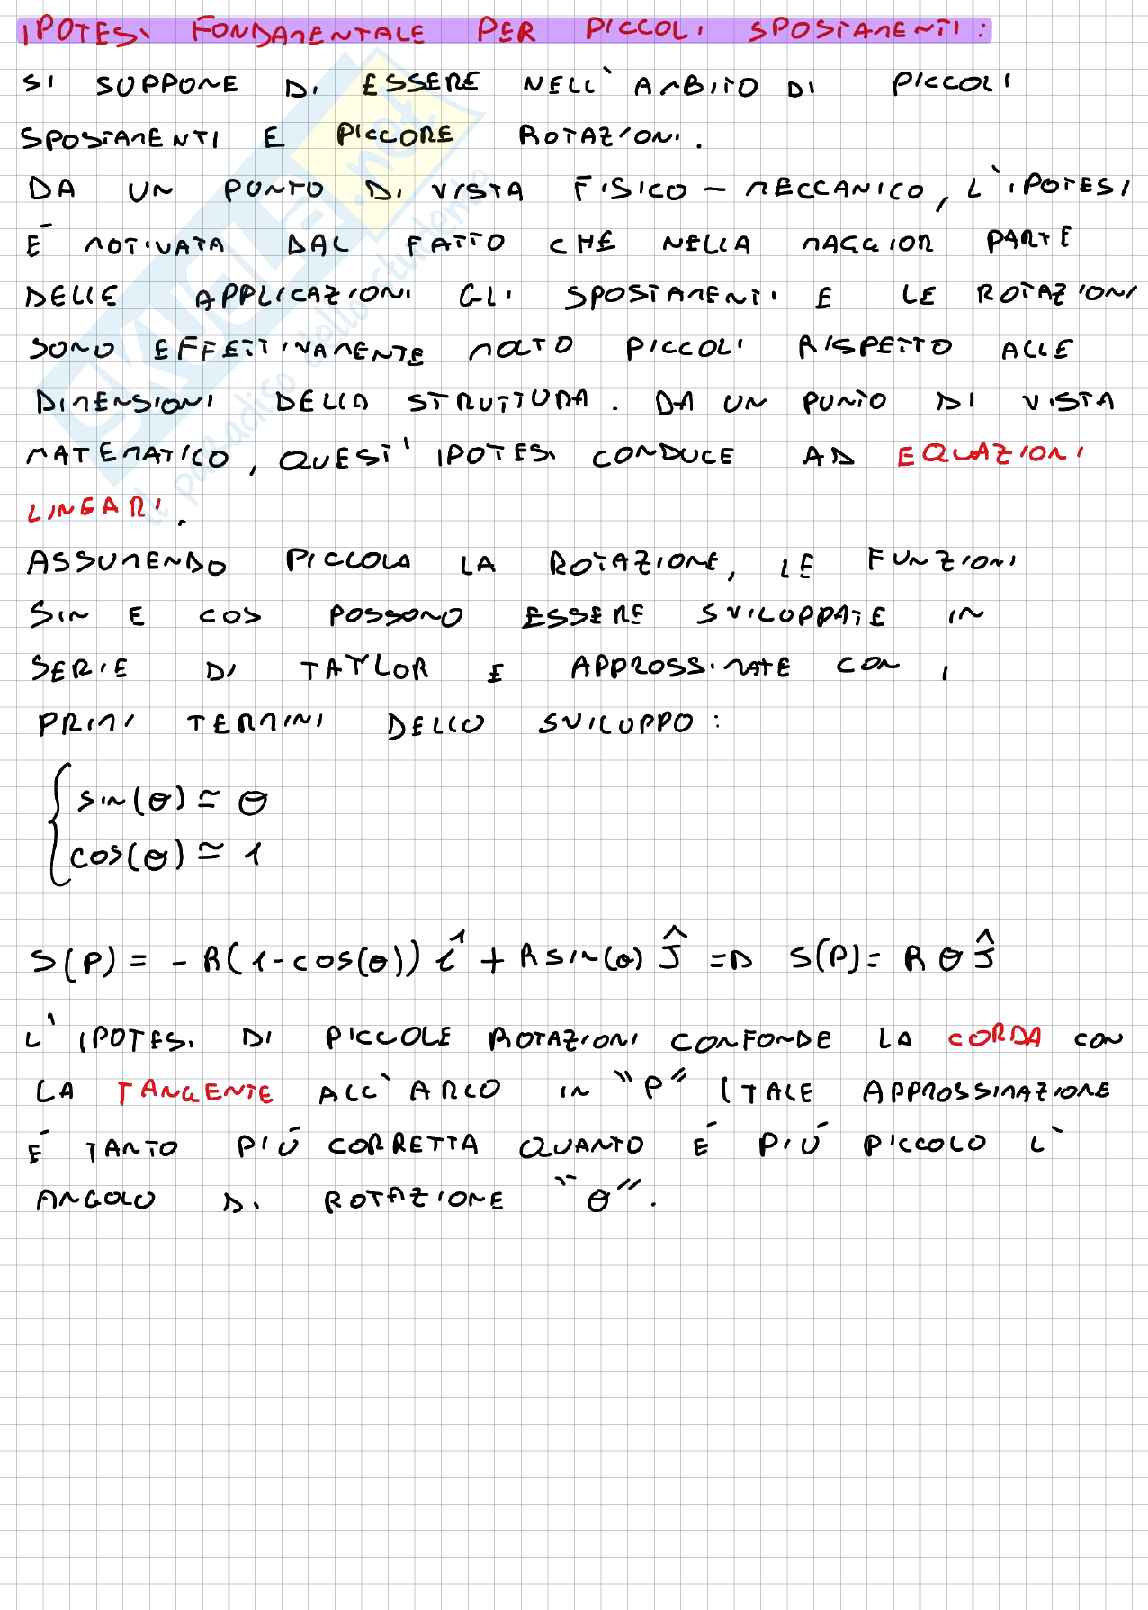 IPOTESI FONDAMENTALE PER PICCOLI SPOSTAMENTI:
SI SUPPONE DI ESSERE NELL'AMBITO DI PICCOLI
SPOSTAMENTI E PICCORE ROTAZIONI.
DA UN PUNTO DI VISTA FISICO-MECCANICO, L'IPOTESI
É MOTIVATA DAL FATTO CHE NELLA MAGGIOR PARTE
DELLE APPLICAZIONI GLI SPOSTAMENTI E LE ROTAZIONI
SONO EFFETTIVAMENTE MOLTO PICCOLI RISPETTO ALLE
DIMENSIONI DELLA STRUTTURA. DA UN PUNTO DI VISTA
MATEMATICO, QUEST'IPOTESI CONDUCE AD EQUAZIONI
LINEARI.
ASSUMENDO PICCOLA LA ROTAZIONE, LE FUNZIONI
SIN E COS POSSONO ESSERE SVILUPPATE IN
SERIE DI TAYLOR E APPROSSIMATE CON I
PRIMI TERMINI DELLO SVILUPPO:
sin(θ) ≃ θ
cos(θ) ≃ 1
S(P) = -R(1-cos(θ)) î + R sin(θ) ĵ => S(P) = R θ ĵ
L'IPOTESI DI PICCOLE ROTAZIONI CONFONDE LA CORDA CON
LA TANGENTE ALL'ARCO IN "P" (TALE APPROSSIMAZIONE
É TANTO PIÚ CORRETTA QUANTO É PIÚ PICCOLO L'
ANGOLO DI ROTAZIONE "θ".
SKUOLA.net
il paradiso dello studente